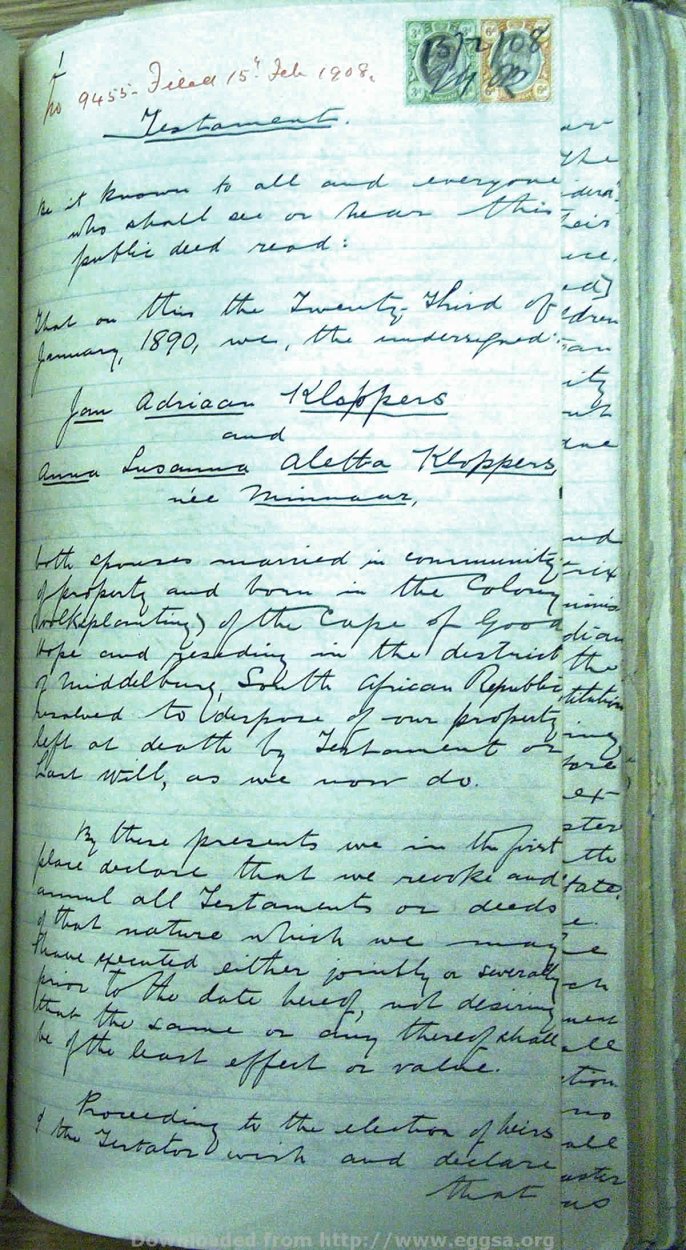 1
No 9455. Filed 15th Feb 1908.
15/2/08
Testament.
Be it known to all and everyone
who shall see or hear this
public deed read:
That on this the Twenty-Third of
January, 1890, we, the undersigned:
Jan Adriaan Kloppers
and
Anna Susanna Aletta Kloppers,
née Minnaar,
both spouses married in community
of property and born in the Colony
(Volksplanting) of the Cape of Good
Hope and residing in the district
of Middelburg, South African Republic,
resolved to dispose of our property
left at death by Testament or
Last Will, as we now do.
By these presents we in the first
place declare that we revoke and
annul all Testaments or deeds
of that nature which we may
have executed either jointly or severally
prior to the date hereof, not desiring
that the same or any thereof shall
be of the least effect or value.
Proceeding to the election of heirs
I the Testator wish and declare
that
Downloaded from http://www.eggsa.org